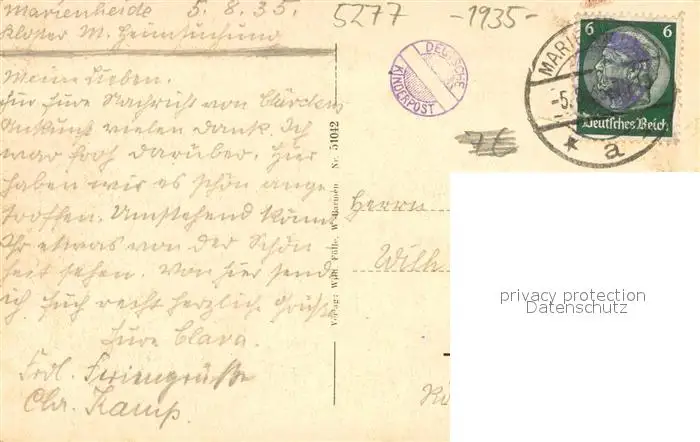 Marienheide 5.8.35.
Kloster M. Heimsuchung
5277 -1935-
Meine Lieben.
Für Eure Nachricht von
Ankunft vielen Dank. Ich
war froh darüber. Hier
haben wir es schön ange
troffen. Umstehend könnt
Ihr etwas von der Schön-
heit sehen. Von hier send
ich Euch recht herzliche Grüße
Eure Clara.
Frdl. Feriengrüße
Chr. Kamp.
DEUTSCHE
KINDERPOST
76
6 6
Deutsches Reich
MARIE
-5.
* a
Verlag: Wilh. Fülle, W.-Barmen Nr. 51042
Herrn
Wilh
privacy protection
Datenschutz